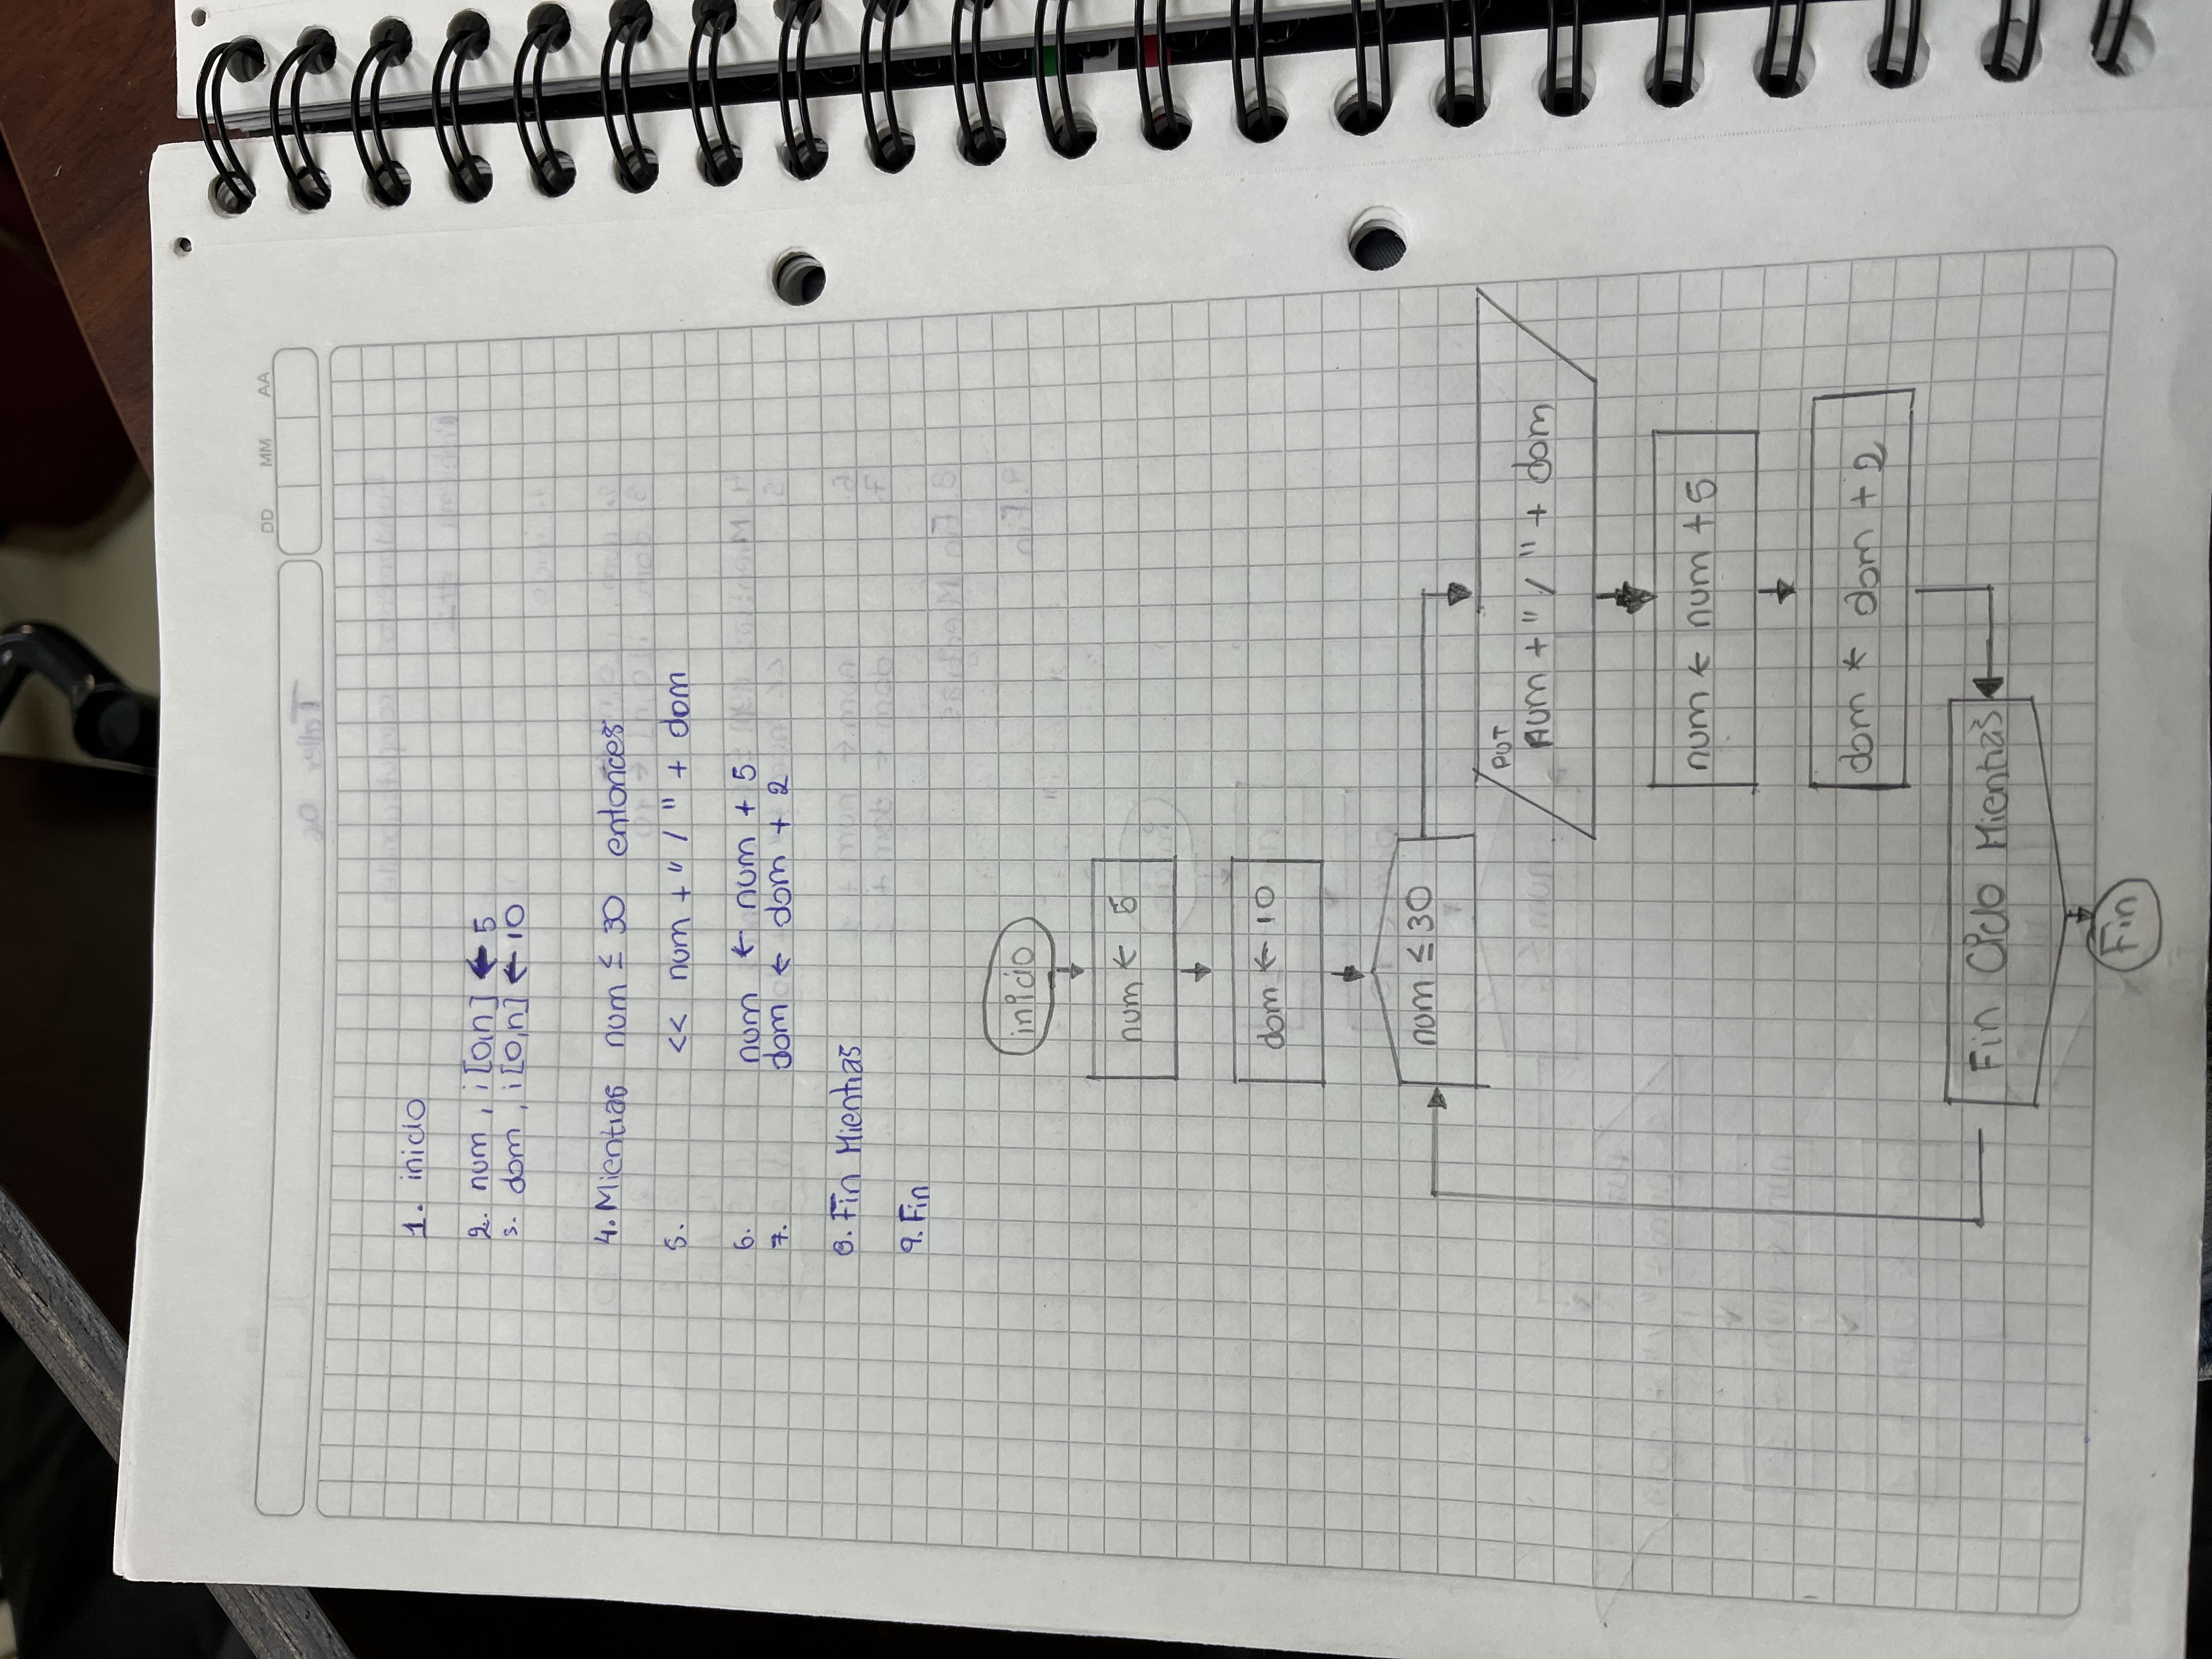 DD MM AA
1. inicio
2. num , i[0,n] ← 5
3. dom , i[0,n] ← 10
4. Mientras num ≤ 30 entonces
5. << num + " / " + dom
6. num ← num + 5
7. dom ← dom + 2
8. Fin Mientras
9. Fin
inicio
num ← 5
dom ← 10
num ≤ 30
PUT
num + " / " + dom
num ← num + 5
dom ← dom + 2
Fin Ciclo Mientras
Fin